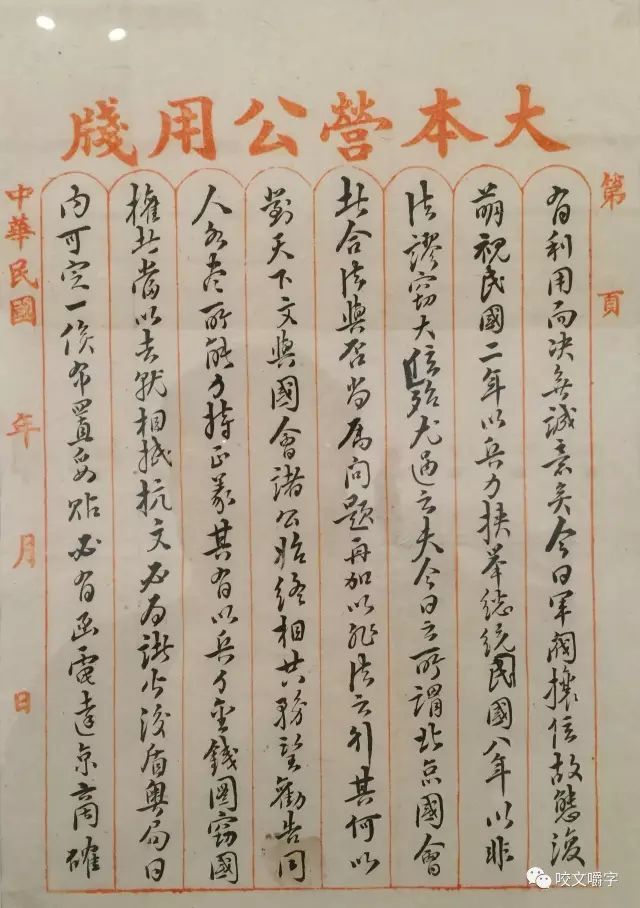 大本營公用牋
第 頁
有利用而決無誠意矣今日軍閥攘位故態復
萌視民國二年以兵力挾舉總統民國八年以非
法謬竊大位殆尤過之夫今日之所謂北京國會
其合法與否尚為問題再加以非法之行其何以
對天下文與國會諸公始終相共務望勸告同
人各盡所能力持正義其有以兵力金錢圖竊國
權者當以去就相抵抗文必為諸公後盾粵局日
內可定一俟布置妥貼必有函電達京商確
中華民國 年 月 日
咬文嚼字